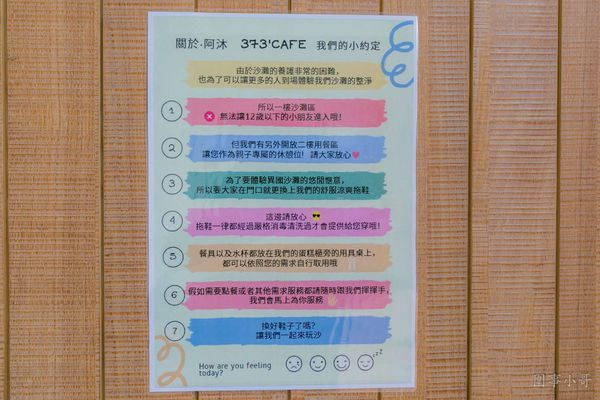 關於-阿沐 373'CAFE 我們的小約定
由於沙灘的養護非常的困難，
也為了可以讓更多的人到場體驗我們沙灘的整淨
1
所以一樓沙灘區
無法讓12歲以下的小朋友進入哦!
2
但我們有另外開放二樓用餐區
讓您作為親子專屬的休憩位! 請大家放心
3
為了要體驗異國沙灘的悠閒愜意，
所以要大家在門口就更換上我們的舒服涼爽拖鞋
4
這邊請放心
拖鞋一律都經過嚴格消毒清洗過才會提供給您穿哦!
5
餐具以及水杯都放在我們的蛋糕櫃旁的用具桌上，
都可以依照您的需求自行取用哦
6
假如需要點餐或者其他需求服務都請隨時跟我們揮揮手，
我們會馬上為你服務
7
換好鞋子了嗎?
讓我們一起來玩沙
How are you feeling
today?
zzz
國事小哥